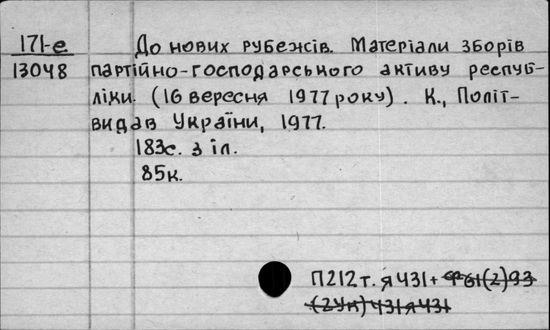 171-е
13048
До нових рубежів. Матеріали зборів
партійно-господарського активу респуб-
ліки. (16 вересня 1977 року). К., Політ-
видав України, 1977.
183с. з іл.
85к.
П212т.я431+
(2Ук)431я431